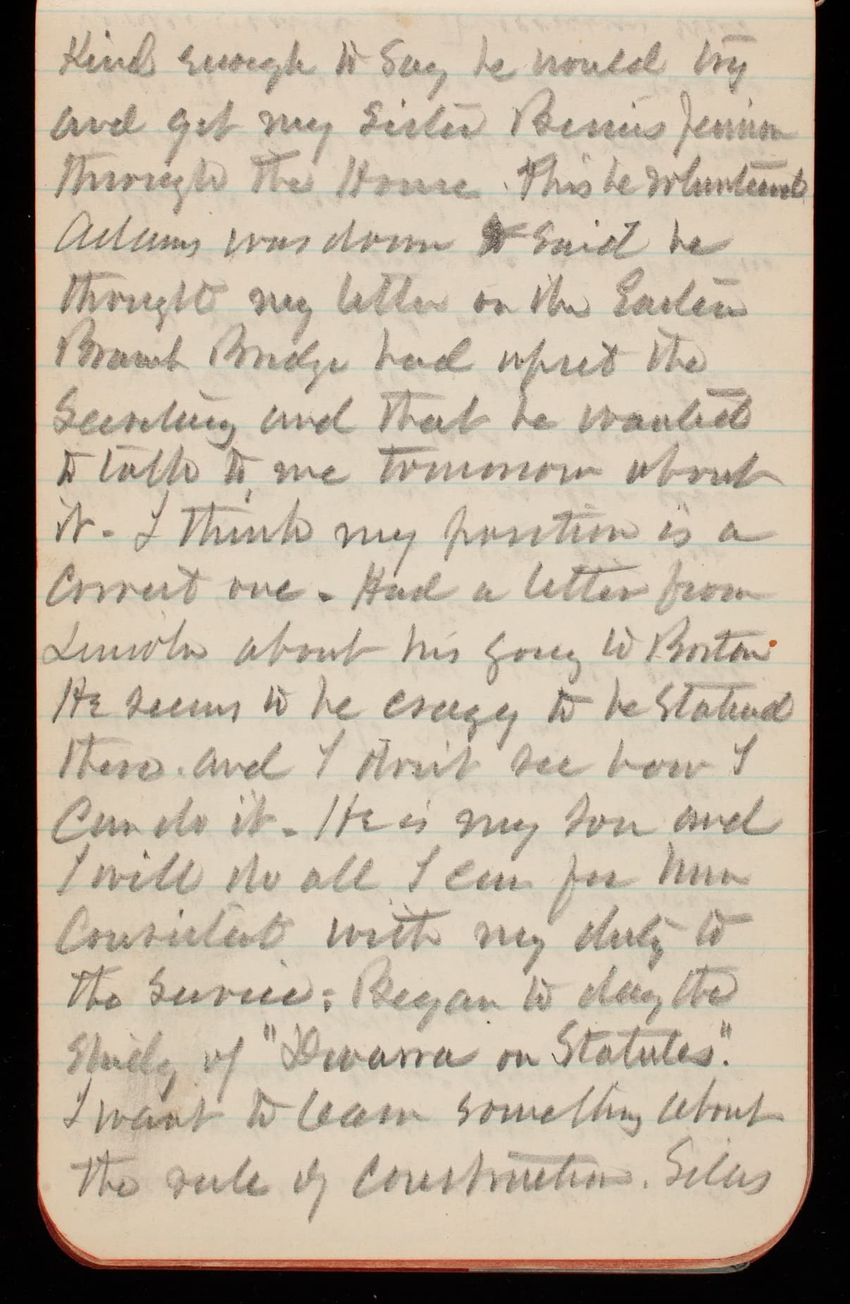 Kind enough to say he would try
and get my Sister Bemis Pension
through the House. This he volunteered
Adams was down & said he
thought my letter on the Eastern
Branch Bridge had upset the
Secretary and that he wanted
to talk to me tomorrow about
it - I think my position is a
correct one - Had a letter from
Lincoln about his going to Boston
He seems to be crazy to be Stationed
there. and I don't see how I
can do it - He is my son and
I will do all I can for him
Consistent with my duty to
the Service: Began to day the
Study of "Dwarris on Statutes".
I want to learn something about
the rule of construction. Silas